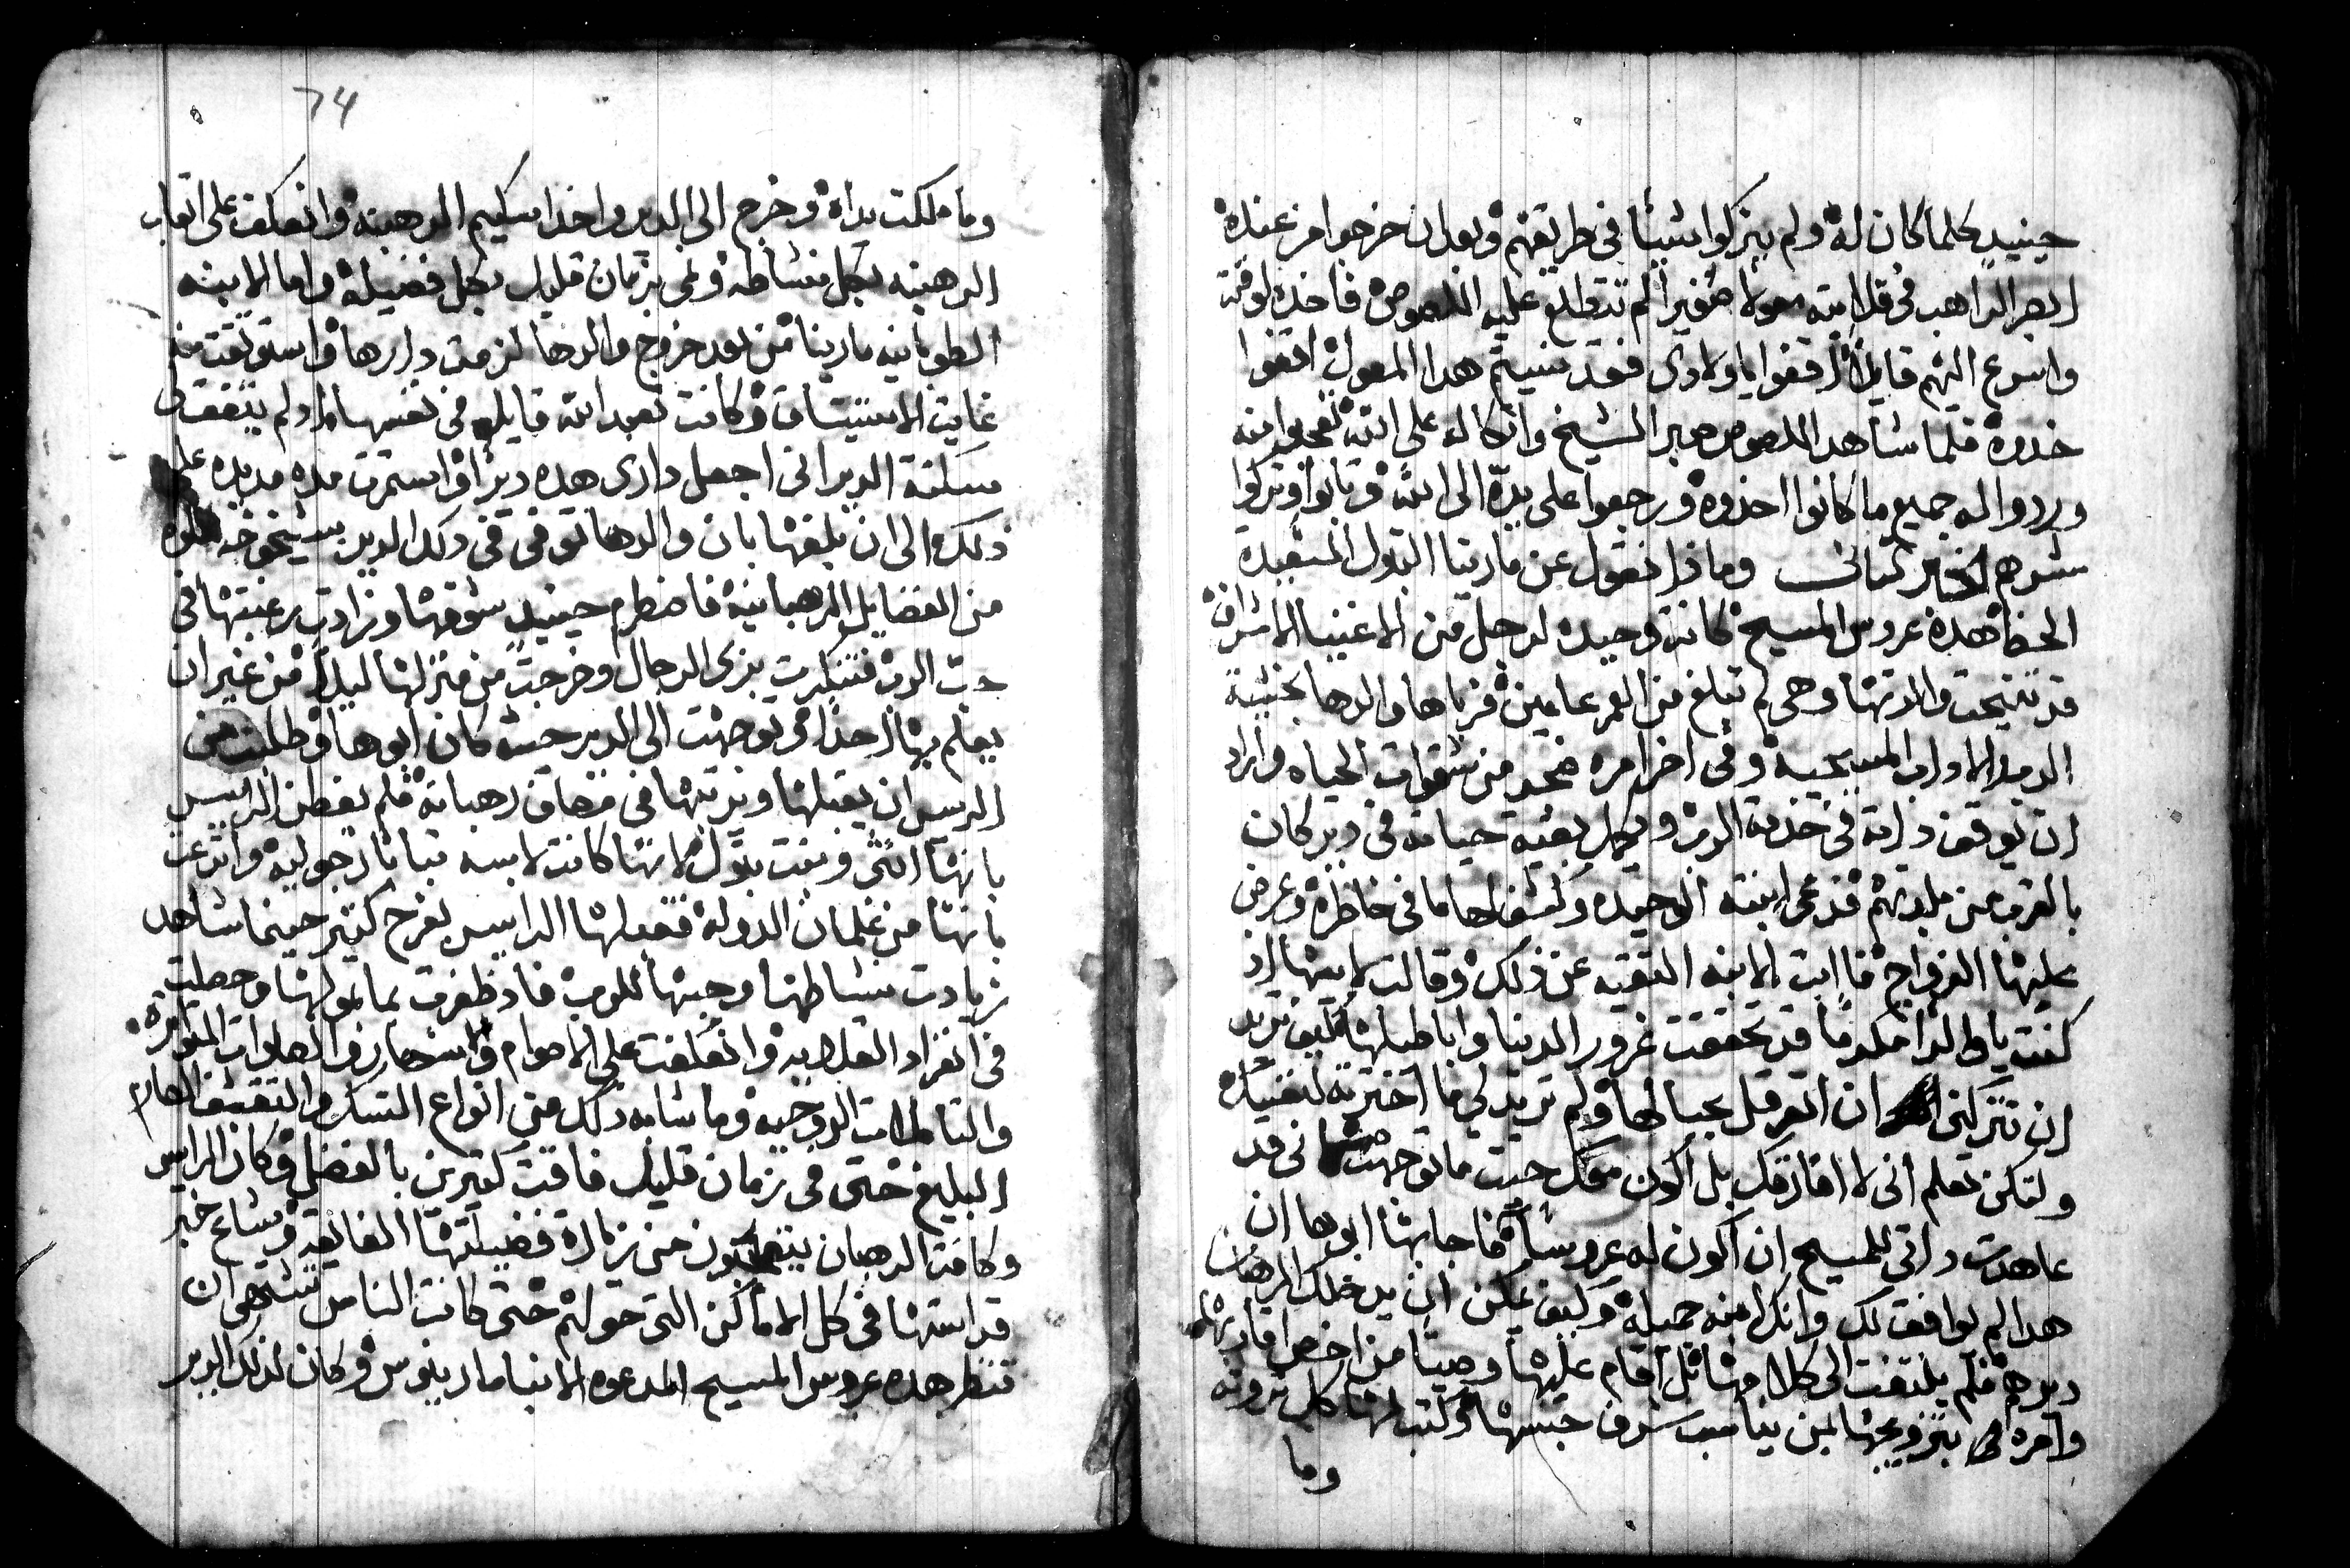 حينيدٍ كلما كان له ولم يتركوا شيئا في طريقهم وبعد ان خرجوا من عنده
ابصر الراهب في قلايته معولا صغيرا لم تتطلع عليه اللصوص فاخده لوقته
واسرع اليهم قايلاً قفوا ياولادي فقد نسيتم هدا المعول اقفوا
خدوه فلما شاهد اللصوص صبر الشيخ واتكاله على الله تعجبوا منه
وردوا له جميع ما كانوا اخدوه ورجعوا على يده الى الله وتابوا وتركوا
شرهم الخبر التاني وماذا نقول عن مارينا البتول المتعبدة
الحظا هده عروس المسيح كانت وحيده لرجل من الاغنيا الاشراف
قد تنيحت والدتها وهي لم تبلغ من العمر عامين فرباها والدها بخشية
الرب والاداب المسيحيه وفي اخر امره ضجر من شقوات الحياه واراد
ان يوقف داته في خدمة الرب ويكمل بقية حياته في دير كان
بالقرب من بلدتهم فدعى ابنته الوحيده وكشف لها ما في خاطره وعرض
عليها الزواج فابت الابنه التقيه عن ذلك وقالت لابيها اذ
كنت يا والدا مكرما قد تحققت غرور الدنيا واباطيلها كيف تريد
ان تتركني ان اتعرقل بحبالها ولم تريد لي ما اخترته لنفسك
ولتكن تعلم اني لا افارقك بل اكون معك حيت ما توجهت اني قد
عاهدت داتي للمسيح ان اكون له عروسا فاجابها ابوها ان
هدا لم يوافق لك وانك ابنه جميله وكيف يمكن ان يدخلك الرهبان
ديرهم فلم يلتفت الى كلامها بل اقام عليها وصيا من اخص اقاربها
وامره بتزويجها لمن يناسب شرف جنسها وكتب لها كل تروته
وما
74
وما ملكت يداه وخرج الى الدير واخد اسكيم الرهبنه وانعكف على اتعاب
الرهبنه بكل نشاطه ونمى بزمان قليل بكل فضيله واما الابنه
الطوبانيه مارينا فمن بعد خروج والدها لزمت دارها واستوتقت منه
غايت الاستيتاق وكانت تعبد الله قايله في نفسها اد لم يتفق لي
سكنة الدير اني اجعل داري هده ديرا واستمرت مده مديده على
ذلك الى ان بلغها بان والدها توفي في دلك الدير بشيخوخه مملوه
من الفضايل الرهبانيه فاضطرم حينيدٍ شوقها وزادت رغبتها في
حب الرب فتنكرت بزي الرجال وخرجت من منزلها ليلاً من غير ان
يعلم بها احداً وتوجهت الى الدير حيث كان ابوها وطلبت من
الريس ان يقبلها ويرتبها في مصاف رهبانه فلم يفطن الرايس
بانها انثى وبنت بتول لانها كانت لابسه تيابا رجوليه وادعت
بانها من غلمان الدوله فقبلها الرايس بفرح كتير حينما شاهد
زيادت نشاطها وحبها للرب فاد ظفرت بمامولها وحصلت
في انفراد القلايه وانعكفت على الاصوام والاسحار في الصلوات المتواتره
والتاملات الروحيه وما شابه دلك من انواع النسك والتقشف الصارم
البليغ حتى في زمان قليل فاقت كتيرين بالفضل وكان الرايس
وكافة الرهبان يتعجبون من زيادة فضيلتها الفايقه وشاع خبر
قداستها في كل الاماكن التي حولهم حتى كانت الناس تشتهي ان
تنظر هده عروس المسيح المدعوه الانبا مارينوس وكان لذلك الدير